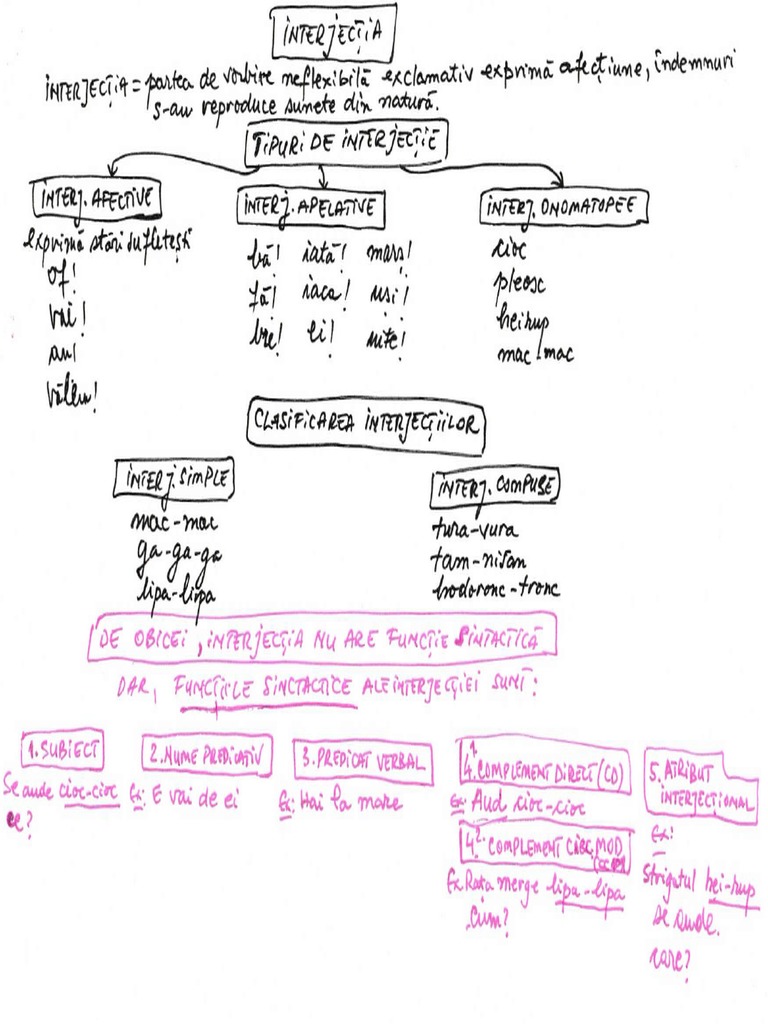 INTERJECȚIA
INTERJECȚIA = partea de vorbire neflexibilă exclamativ exprimă afecțiune, îndemnuri
s-au reproduce sunete din natură.
TIPURI DE INTERJECȚIE
INTERJ. AFECTIVE
exprimă stări sufletești
of!
vai!
au!
văleu!
INTERJ. APELATIVE
bă! iată! marș!
fă! iaca! uși!
bre! ei! uite!
INTERJ. ONOMATOPEE
cioc
pleosc
heirup
mac-mac
CLASIFICAREA INTERJECȚIILOR
INTERJ. SIMPLE
mac-mac
ga-ga-ga
lipa-lipa
INTERJ. COMPUSE
tura-vura
tam-nisam
hodoronc-tronc
DE OBICEI, INTERJECȚIA NU ARE FUNCȚIE SINTACTICĂ
DAR, FUNCȚIILE SINCTACTICE ALE INTERJECȚIEI SUNT:
1. SUBIECT
Se aude cioc-cioc
ce?
2. NUME PREDICATIV
Ex: E vai de ei
3. PREDICAT VERBAL
Ex: Hai la mare
4.1. COMPLEMENT DIRECT (CD)
Ex: Aud cioc-cioc
4.2. COMPLEMENT CIRC. MOD
Ex. Rața merge lipa-lipa
Cum?
5. ATRIBUT
INTERJECȚIONAL
Ex:
Strigătul hei-rup
se aude.
care?